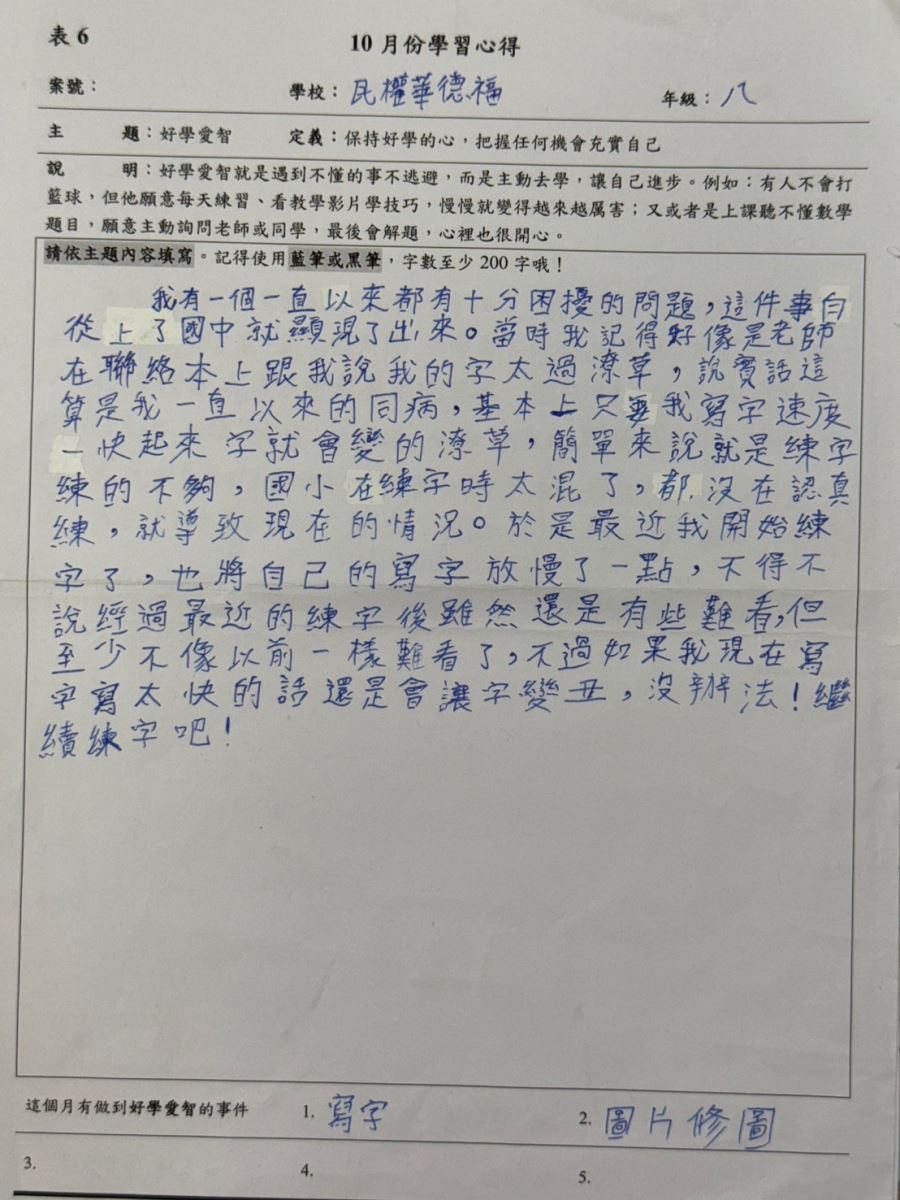 表 6
10 月份學習心得
案號：
學校：民權華德福
年級：八
主　　題：好學愛智　　定義：保持好學的心，把握任何機會充實自己
說　　明：好學愛智就是遇到不懂的事不逃避，而是主動去學，讓自己進步。例如：有人不會打
籃球，但他願意每天練習、看教學影片學技巧，慢慢就變得越來越厲害；又或者是上課聽不懂數學
題目，願意主動詢問老師或同學，最後會解題，心裡也很開心。
請依主題內容填寫。記得使用藍筆或黑筆，字數至少 200 字哦！
我有一個一直以來都有十分困擾的問題，這件事自
從上了國中就顯現了出來。當時我記得好像是老師
在聯絡本上跟我說我的字太過潦草，說實話這
算是我一直以來的同病，基本上只要我寫字速度
一快起來字就會變的潦草，簡單來說就是練字
練的不夠，國小在練字時太混了，都沒在認真
練，就導致現在的情況。於是最近我開始練
字了，也將自己的寫字放慢了一點，不得不
說經過最近的練字後雖然還是有些難看，但
至少不像以前一樣難看了，不過如果我現在寫
字寫太快的話還是會讓字變丑，沒辦法！繼
續練字吧！
這個月有做到好學愛智的事件
1. 寫字
2. 圖片修圖
3.
4.
5.